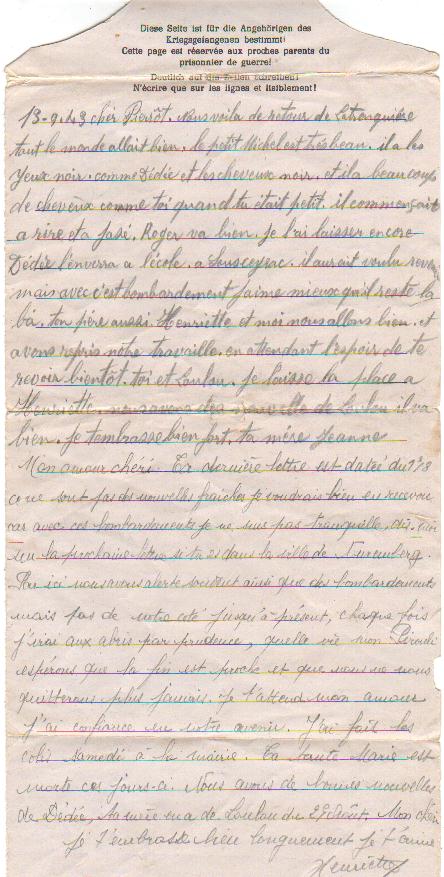 Diese Seite ist für die Angehörigen des
Kriegsgefangenen bestimmt!
Cette page est réservée aux proches parents du
prisonnier de guerre!
Deutlich auf die Zeilen schreiben!
N'écrire que sur les lignes et lisiblement!
13-9-43 cher Pierrot. nous voila de retour de Latronquière
tout le monde allait bien. le petit Michel est tres beau. il a les
yeux noir. comme Dédée et les cheveux noir. et il a beaucoup
de cheveux comme toi quand tu était petit. il commençait
a rire et a jasé. Roger va bien. je l'ai laisser encore
Dédée l'enverra a l'école. a Sousceyrac. il aurait voulu revenir
mais avec c'est bombardement j'aime mieux qu'il reste la
ba. ton père aussi. Henriette et moi nous allons bien. et
avons repris nôtre travaille. en attendant l'espoir de te
revoir bientôt. toi et Loulou. je laisse la place a
Henriette. nous avons des nouvelle de Loulou il va
bien. je t'embrasse bien fort. ta mère Jeanne
Mon amour chéri. Ta dernière lettre est datée du
ce ne sont pas des nouvelles fraîches je voudrais bien en recevoir
car avec ces bombardements je ne suis pas tranquille, dis-moi
sur la prochaine lettre si tu es dans la ville de Nuremberg.
Par ici nous avons alerte souvent ainsi que des bombardements
mais pas de notre coté jusqu'à présent, chaque fois
j'irai aux abris par prudence, quelle vie mon
espérons que la fin est proche et que nous ne nous
quitterons plus jamais. Je t'attend mon amour
j'ai confiance en notre avenir. J'ai fait les
colis samedi à la mairie. Ta tante Marie est
morte ces jours-ci. Nous avons de bonnes nouvelles
de Dédée, ta mère en a de Loulou du août. Mon chéri
je t'embrasse bien longuement je t'aime
Henriette